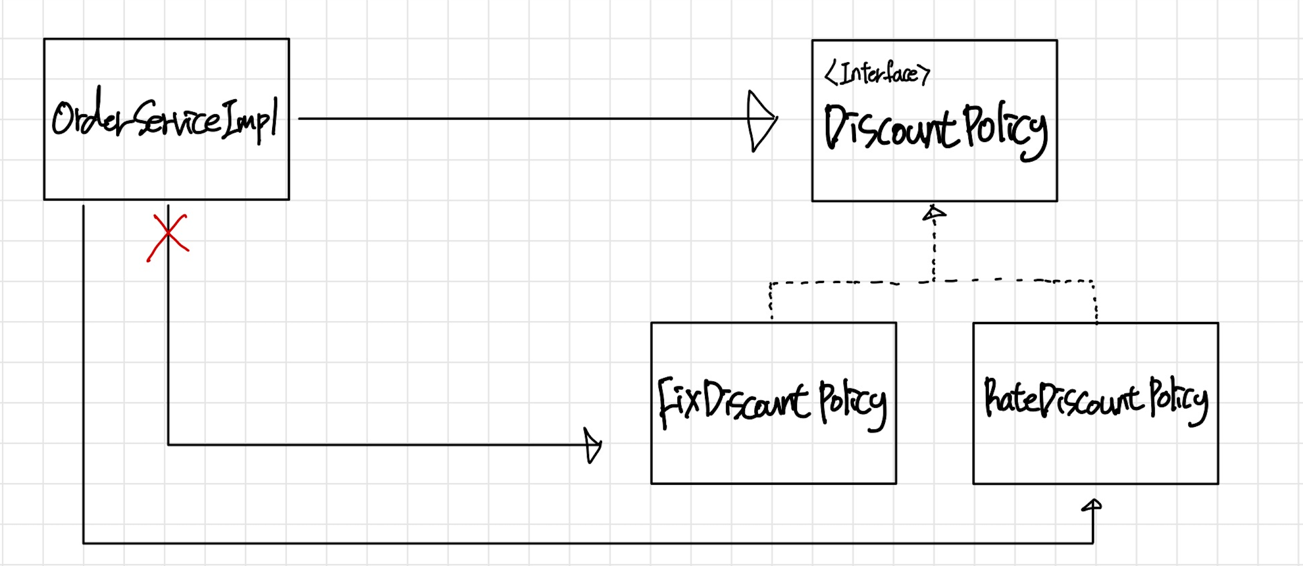 OrderServiceImpl
<Interface>
DiscountPolicy
FixDiscountPolicy
RateDiscountPolicy